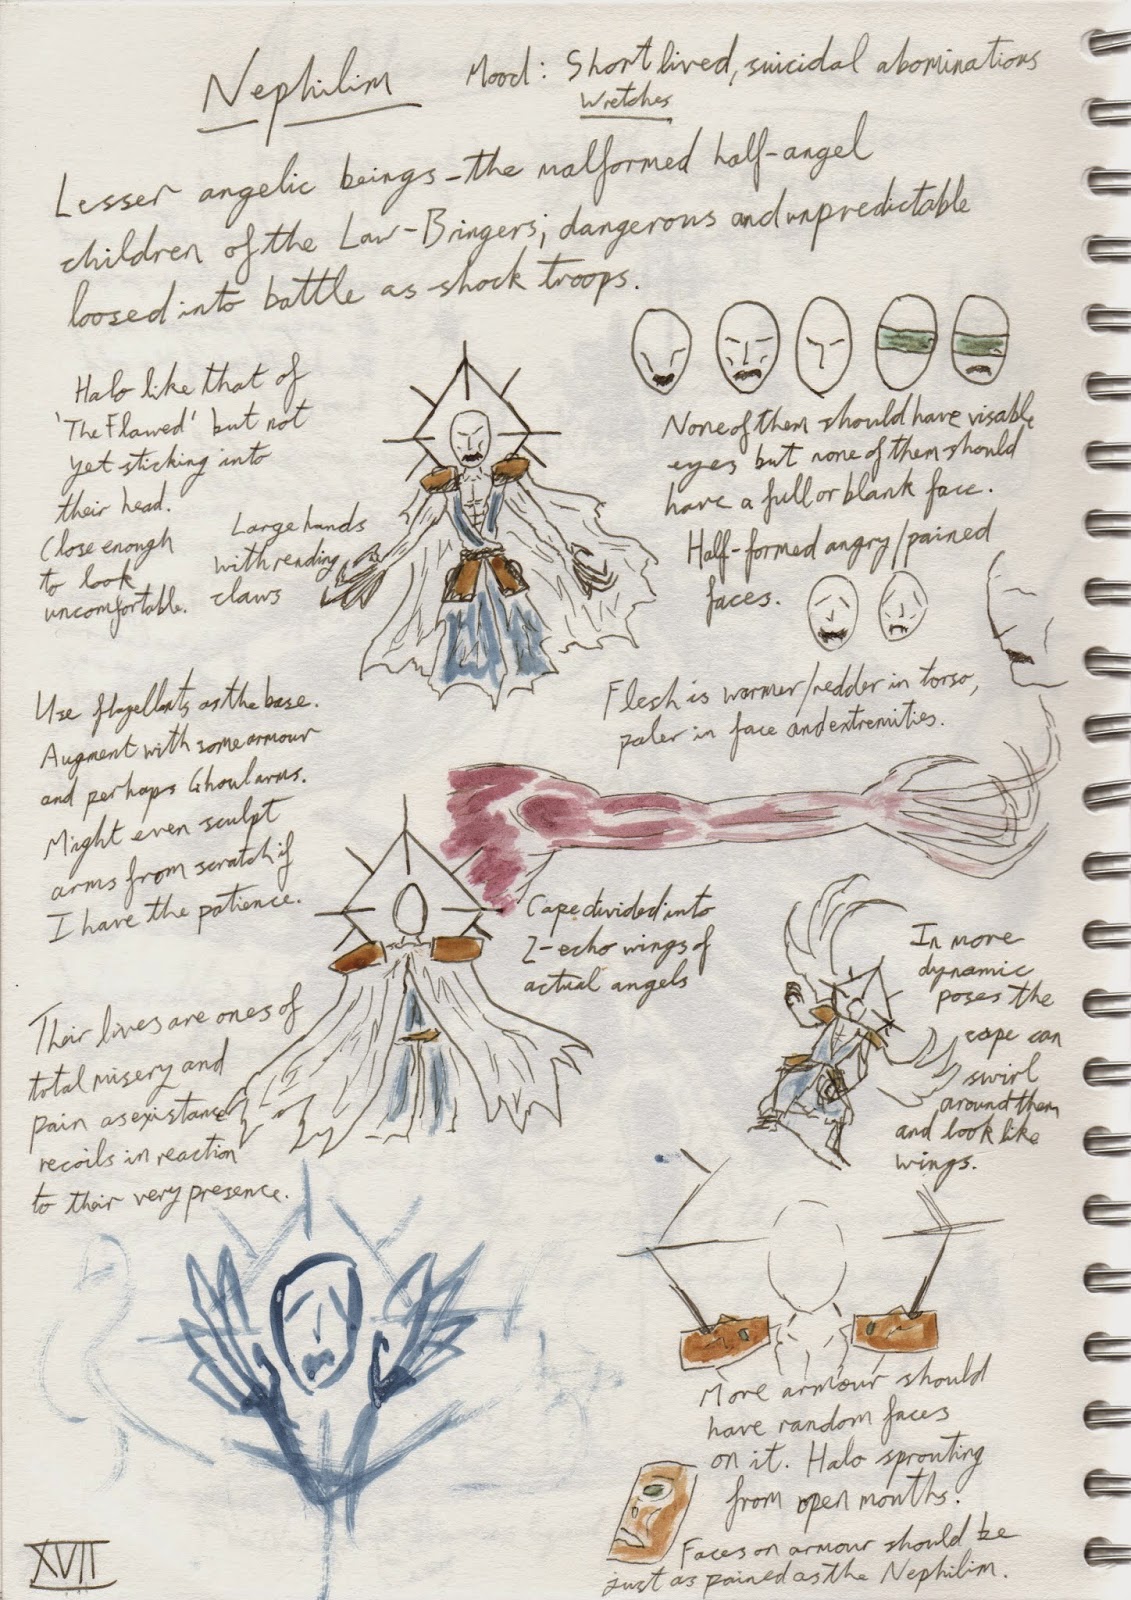 Nephilim
Mood: Short lived, suicidal abominations
Wretches
Lesser angelic beings - the malformed half-angel
children of the Law-Bringers; dangerous and unpredictable
loosed into battle as shock troops.
Halo like that of
'The Flawed' but not
yet sticking into
their head.
Close enough
to look
uncomfortable.
Large hands
with rending
claws
None of them should have visable
eyes but none of them should
have a full or blank face.
Half-formed angry/pained
faces.
Flesh is warmer/redder in torso,
paler in face and extremities.
Use flagellants as the base.
Augment with some armour
and perhaps Ghoul arms.
Might even sculpt
arms from scratch if
I have the patience.
Cape divided into
2 - echo wings of
actual angels
In more
dynamic
poses the
cape can
swirl
around them
and look like
wings.
Their lives are ones of
total misery and
pain as existance
recoils in reaction
to their very presence.
More armour should
have random faces
on it. Halo sprouting
from open mouths.
Faces on armour should be
just as pained as the Nephilim.
XVII